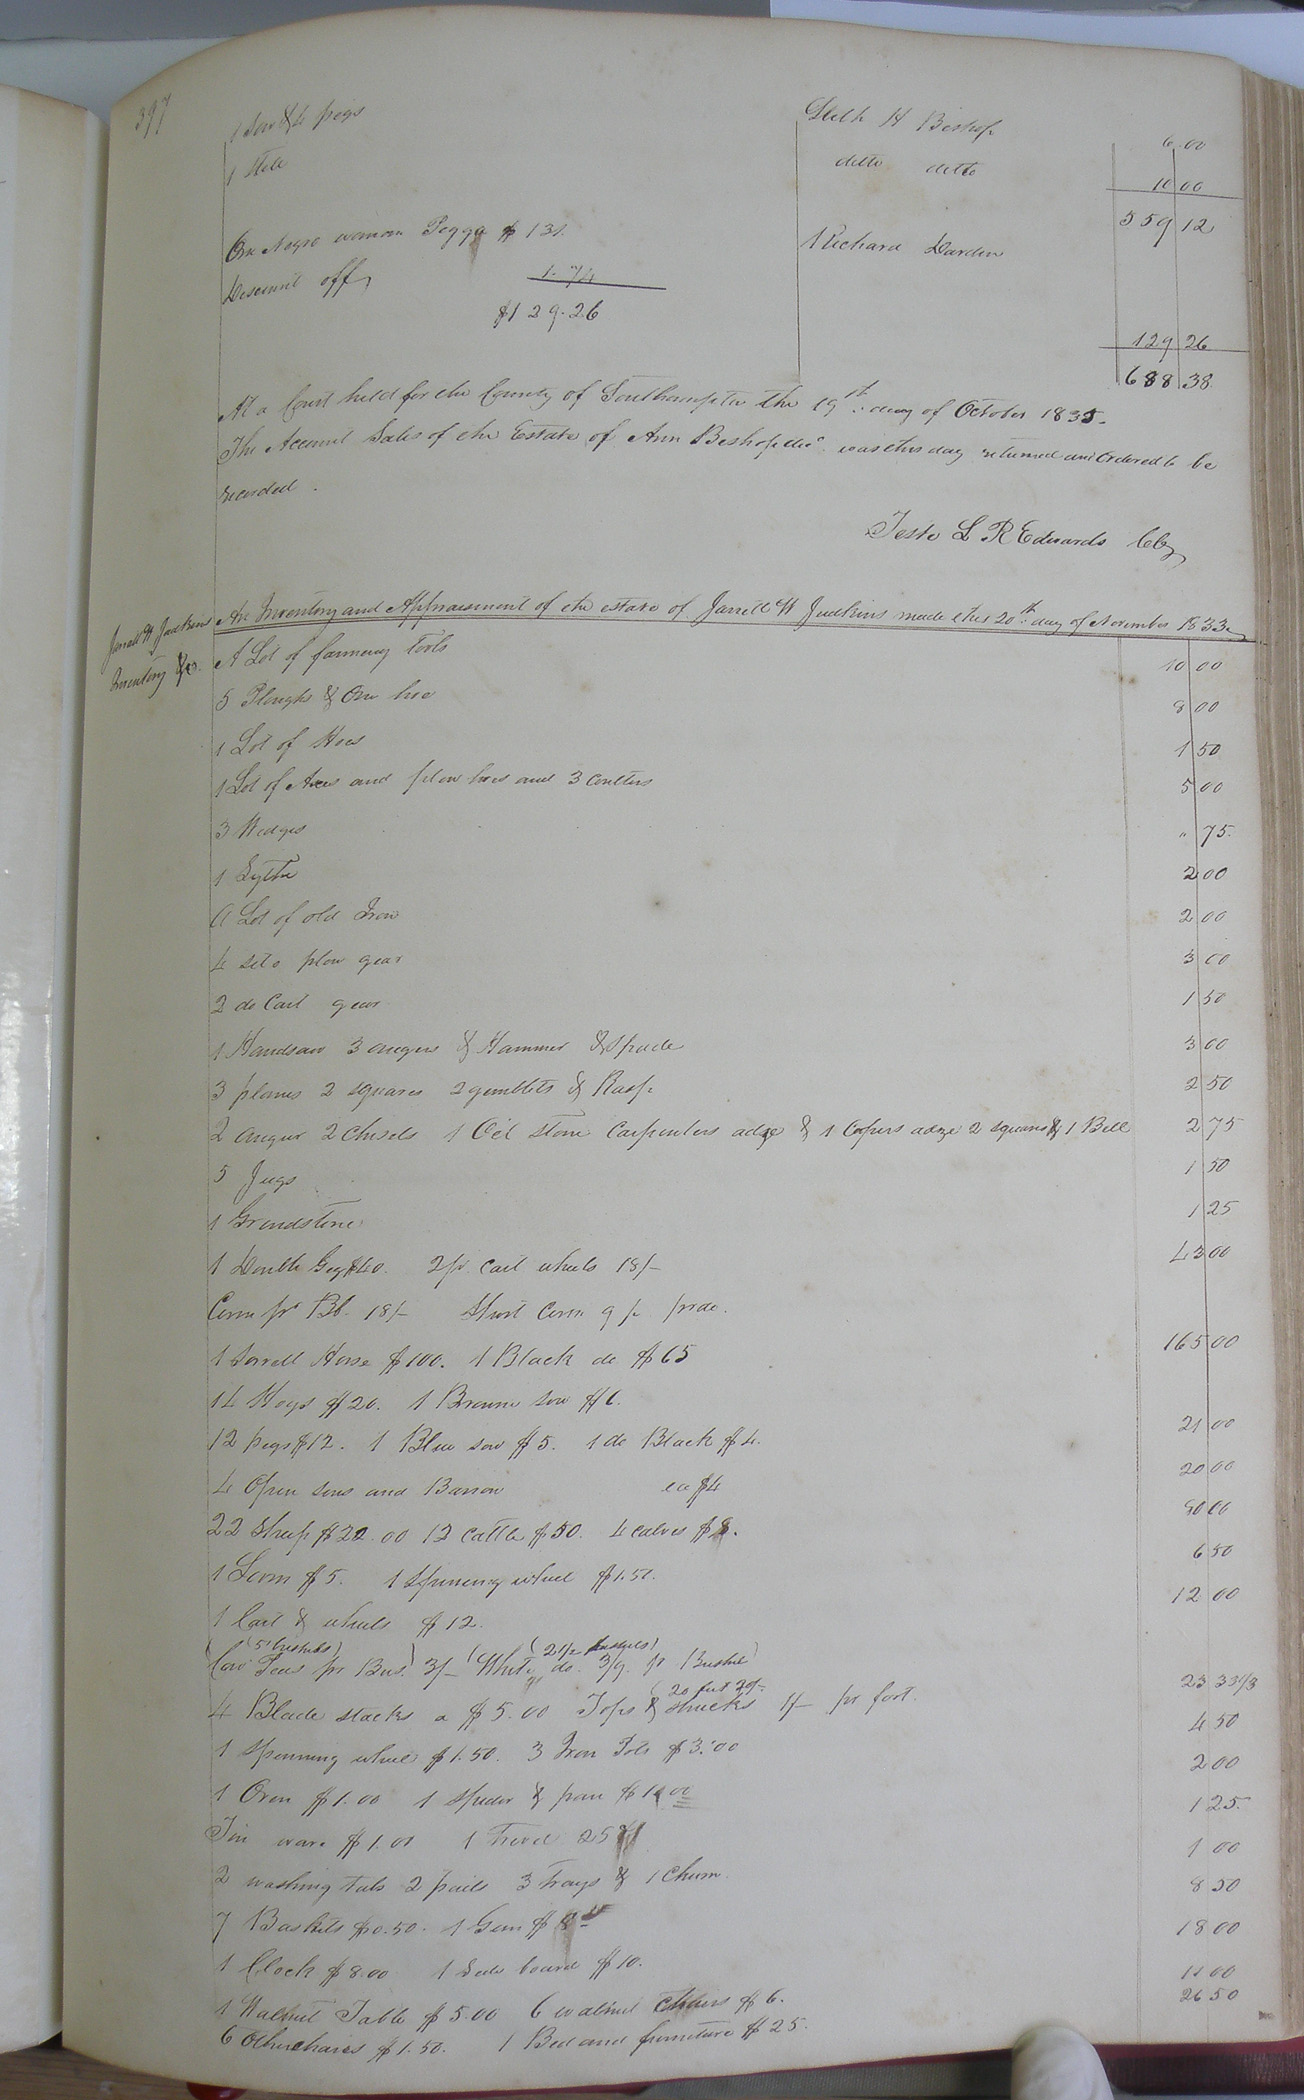 397
1 Sow & 4 pegs Sleth H Bishop 6.00
1 Still ditto ditto 10 00
559 12
One Negro woman Peggy $131. Richard Darden
Discount off 1.74
$129.26 129 26
688 38
At a Court held for the County of Southampton the 19th day of October 1835.
The Account Sales of the Estate of Ann Bishop decd was this day returned and Ordered to be
recorded.
Teste L R Edwards Clk
Jarrell W Judkins
Inventory &c.
An Inventory and Appraisment of the estate of Jarrell W Judkins made this 20th day of November 1833
A Lot of farming tools 10 00
5 Ploughs & One hoe 8 00
1 Lot of Hoes 1 50
1 Lot of Axes and plow hoes and 3 coulters 5 00
3 Wedges " 75
1 Sythe 2 00
A Lot of old Iron 2 00
4 sets plow gear 3 00
2 do Cart gear 1 50
1 Handsaw 3 augers & Hammer & Spade 3 00
3 planes 2 squares 2 gimblets & Rasp 2 50
2 augur 2 chisels 1 Oil stone Carpenters adze & 1 Copers adze 2 squares & 1 Bell 2 75
5 Jugs 1 50
1 Grindstone 1 25
1 Double Gig $40. 2 pr cart wheels 18/- 43 00
Corn pr Bl. 18/- Short Corn 9/-
1 Sorrell Horse $100. 1 Black do $65 165 00
14 Hogs $20. 1 Browne sow $6.
12 pegs $12. 1 Blue sow $5. 1 do Black $4. 21 00
4 Open sows and Barrow ea $4 20 00
22 Sheep $22.00 12 cattle $50. 4 calves $8. 80 00
1 Loom $5. 1 Spinning wheel $1.50. 6 50
1 Cart & wheels $12. 12 00
(5 bushels) (2 1/2 bushels)
Cow Peas pr Bus. 3/- (White do. 3/9. pr Bushel)
20 feet 20/-
4 Blade stacks a $5.00 Tops & shucks 1/- pr foot. 23 33 1/3
1 Spinning wheel $1.50. 3 Iron Pots $3.00 4 50
1 Oven $1.00 1 Spider & pan $1.00 2 00
Tin ware $1.00 1 25
2 washing tubs 2 pails 3 trays & 1 Churn 1 00
7 Baskets $0.50. 1 Gun $8 8 50
1 Clock $8.00 1 Side board $10. 18 00
1 Walnut Table $5.00 6 walnut chairs $6. 11 00
6 Other chairs $1.50. 1 Bed and furniture $25. 26 50